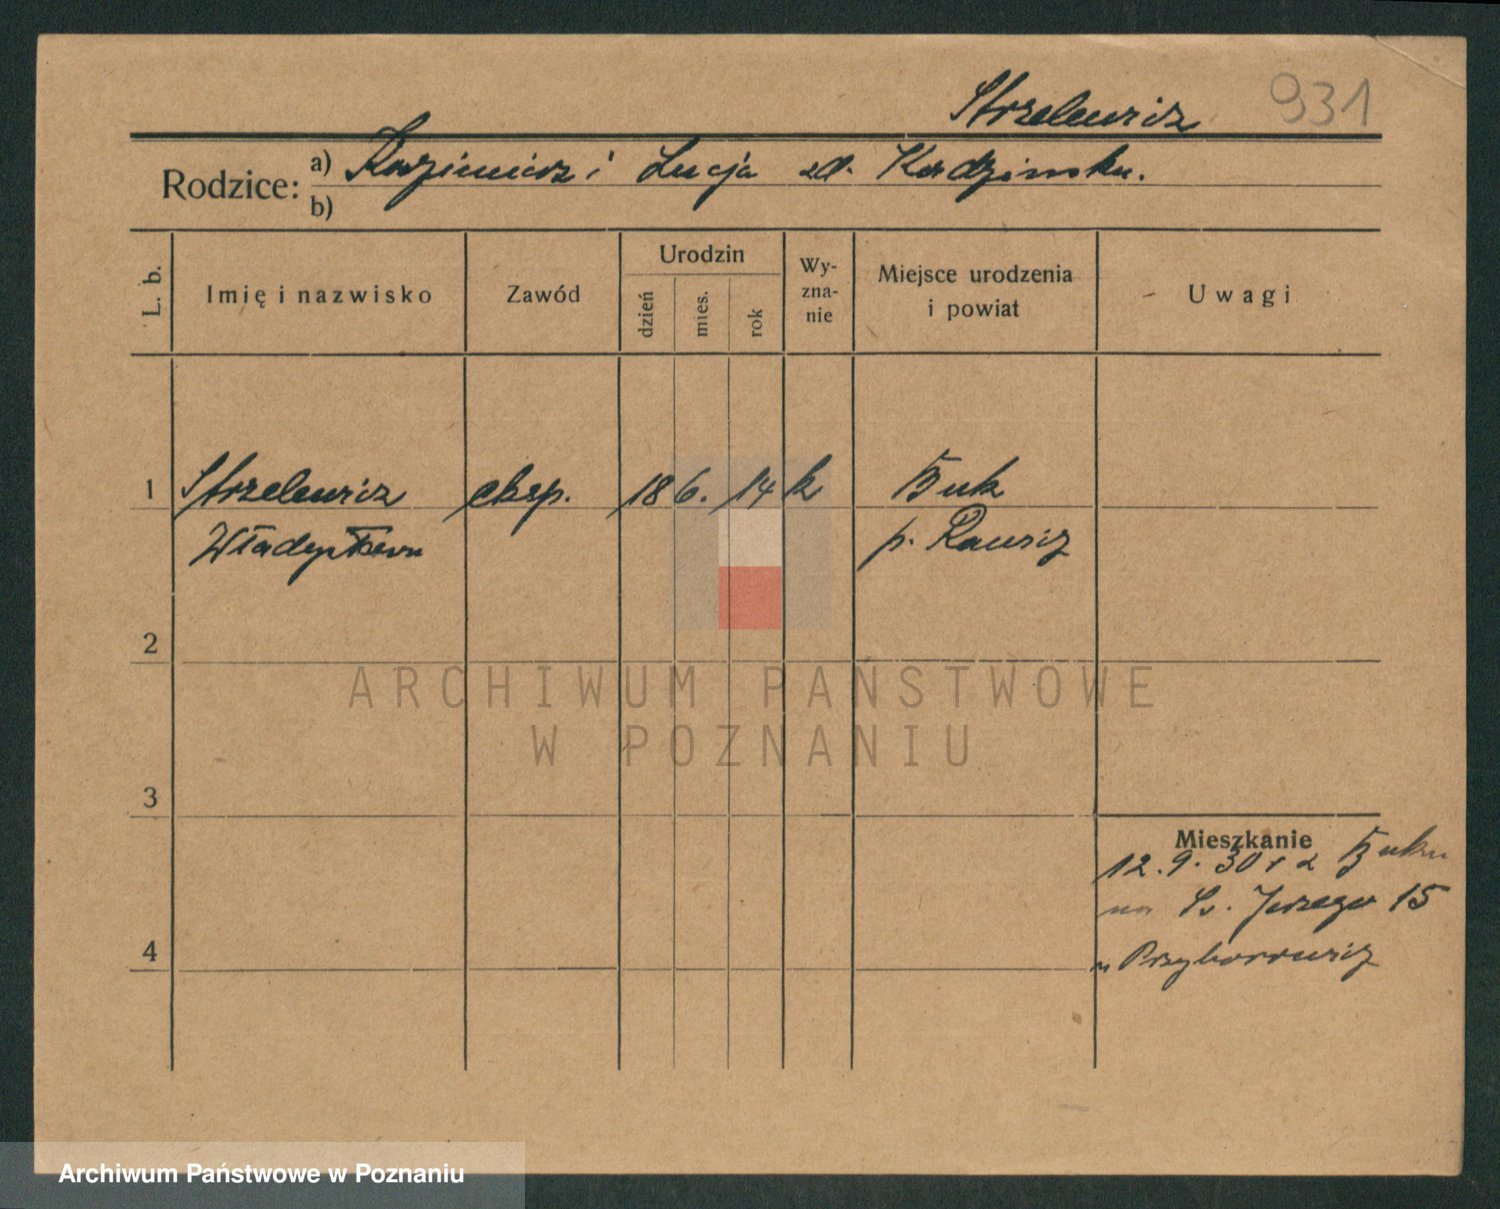 Strzelewicz 931
Rodzice: a) Kazimierz i Łucja zd. Kardzińska.
b)
L. b. Imię i nazwisko Zawód Urodzin dzień mies. rok Wy-zna-nie Miejsce urodzenia i powiat Uwagi
1 Strzelewicz eksp. 18 6. 14 k Buk
Władysława p. Rawicz
2
ARCHIWUM PAŃSTWOWE
W POZNANIU
3
Mieszkanie
12.9.30 r z Buku
na Św. Jerzego 15
u Przyborowicz
4
Archiwum Państwowe w Poznaniu